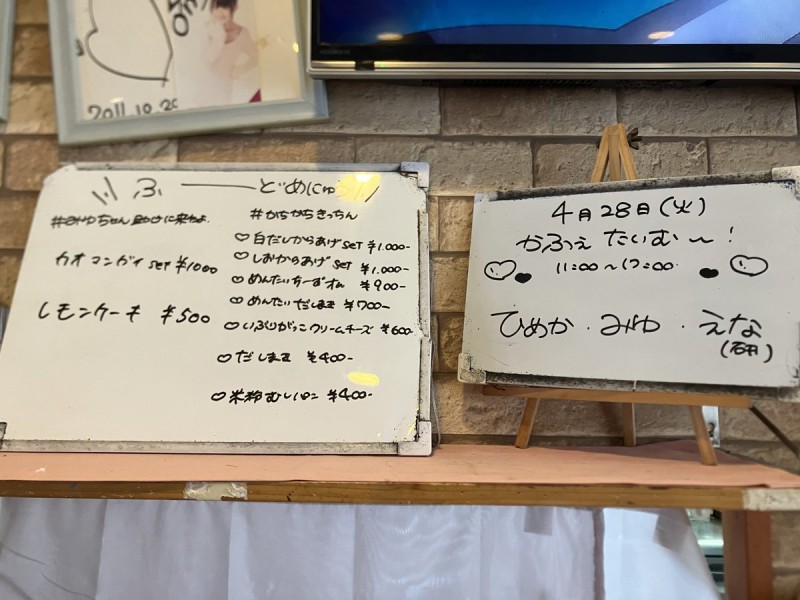 2011.10.20
ふーどめにゅー
#みゆちゃん助けに来たよ
カオマンガイ set ¥1000
レモンケーキ ¥500
#かちかちきっちん
♡白だしからあげ set ¥1.000-
♡しおからあげ set ¥1.000-
♡めんたいちーずオム ¥900-
♡めんたいだしまき ¥700-
♡いぶりがっこクリームチーズ ¥600-
♡だしまき ¥400-
♡米粉むしパン ¥400-
4月28日(火)
かふぇたいむ〜!
11:00〜17:00
ひめか・みゆ・えな
(石井)